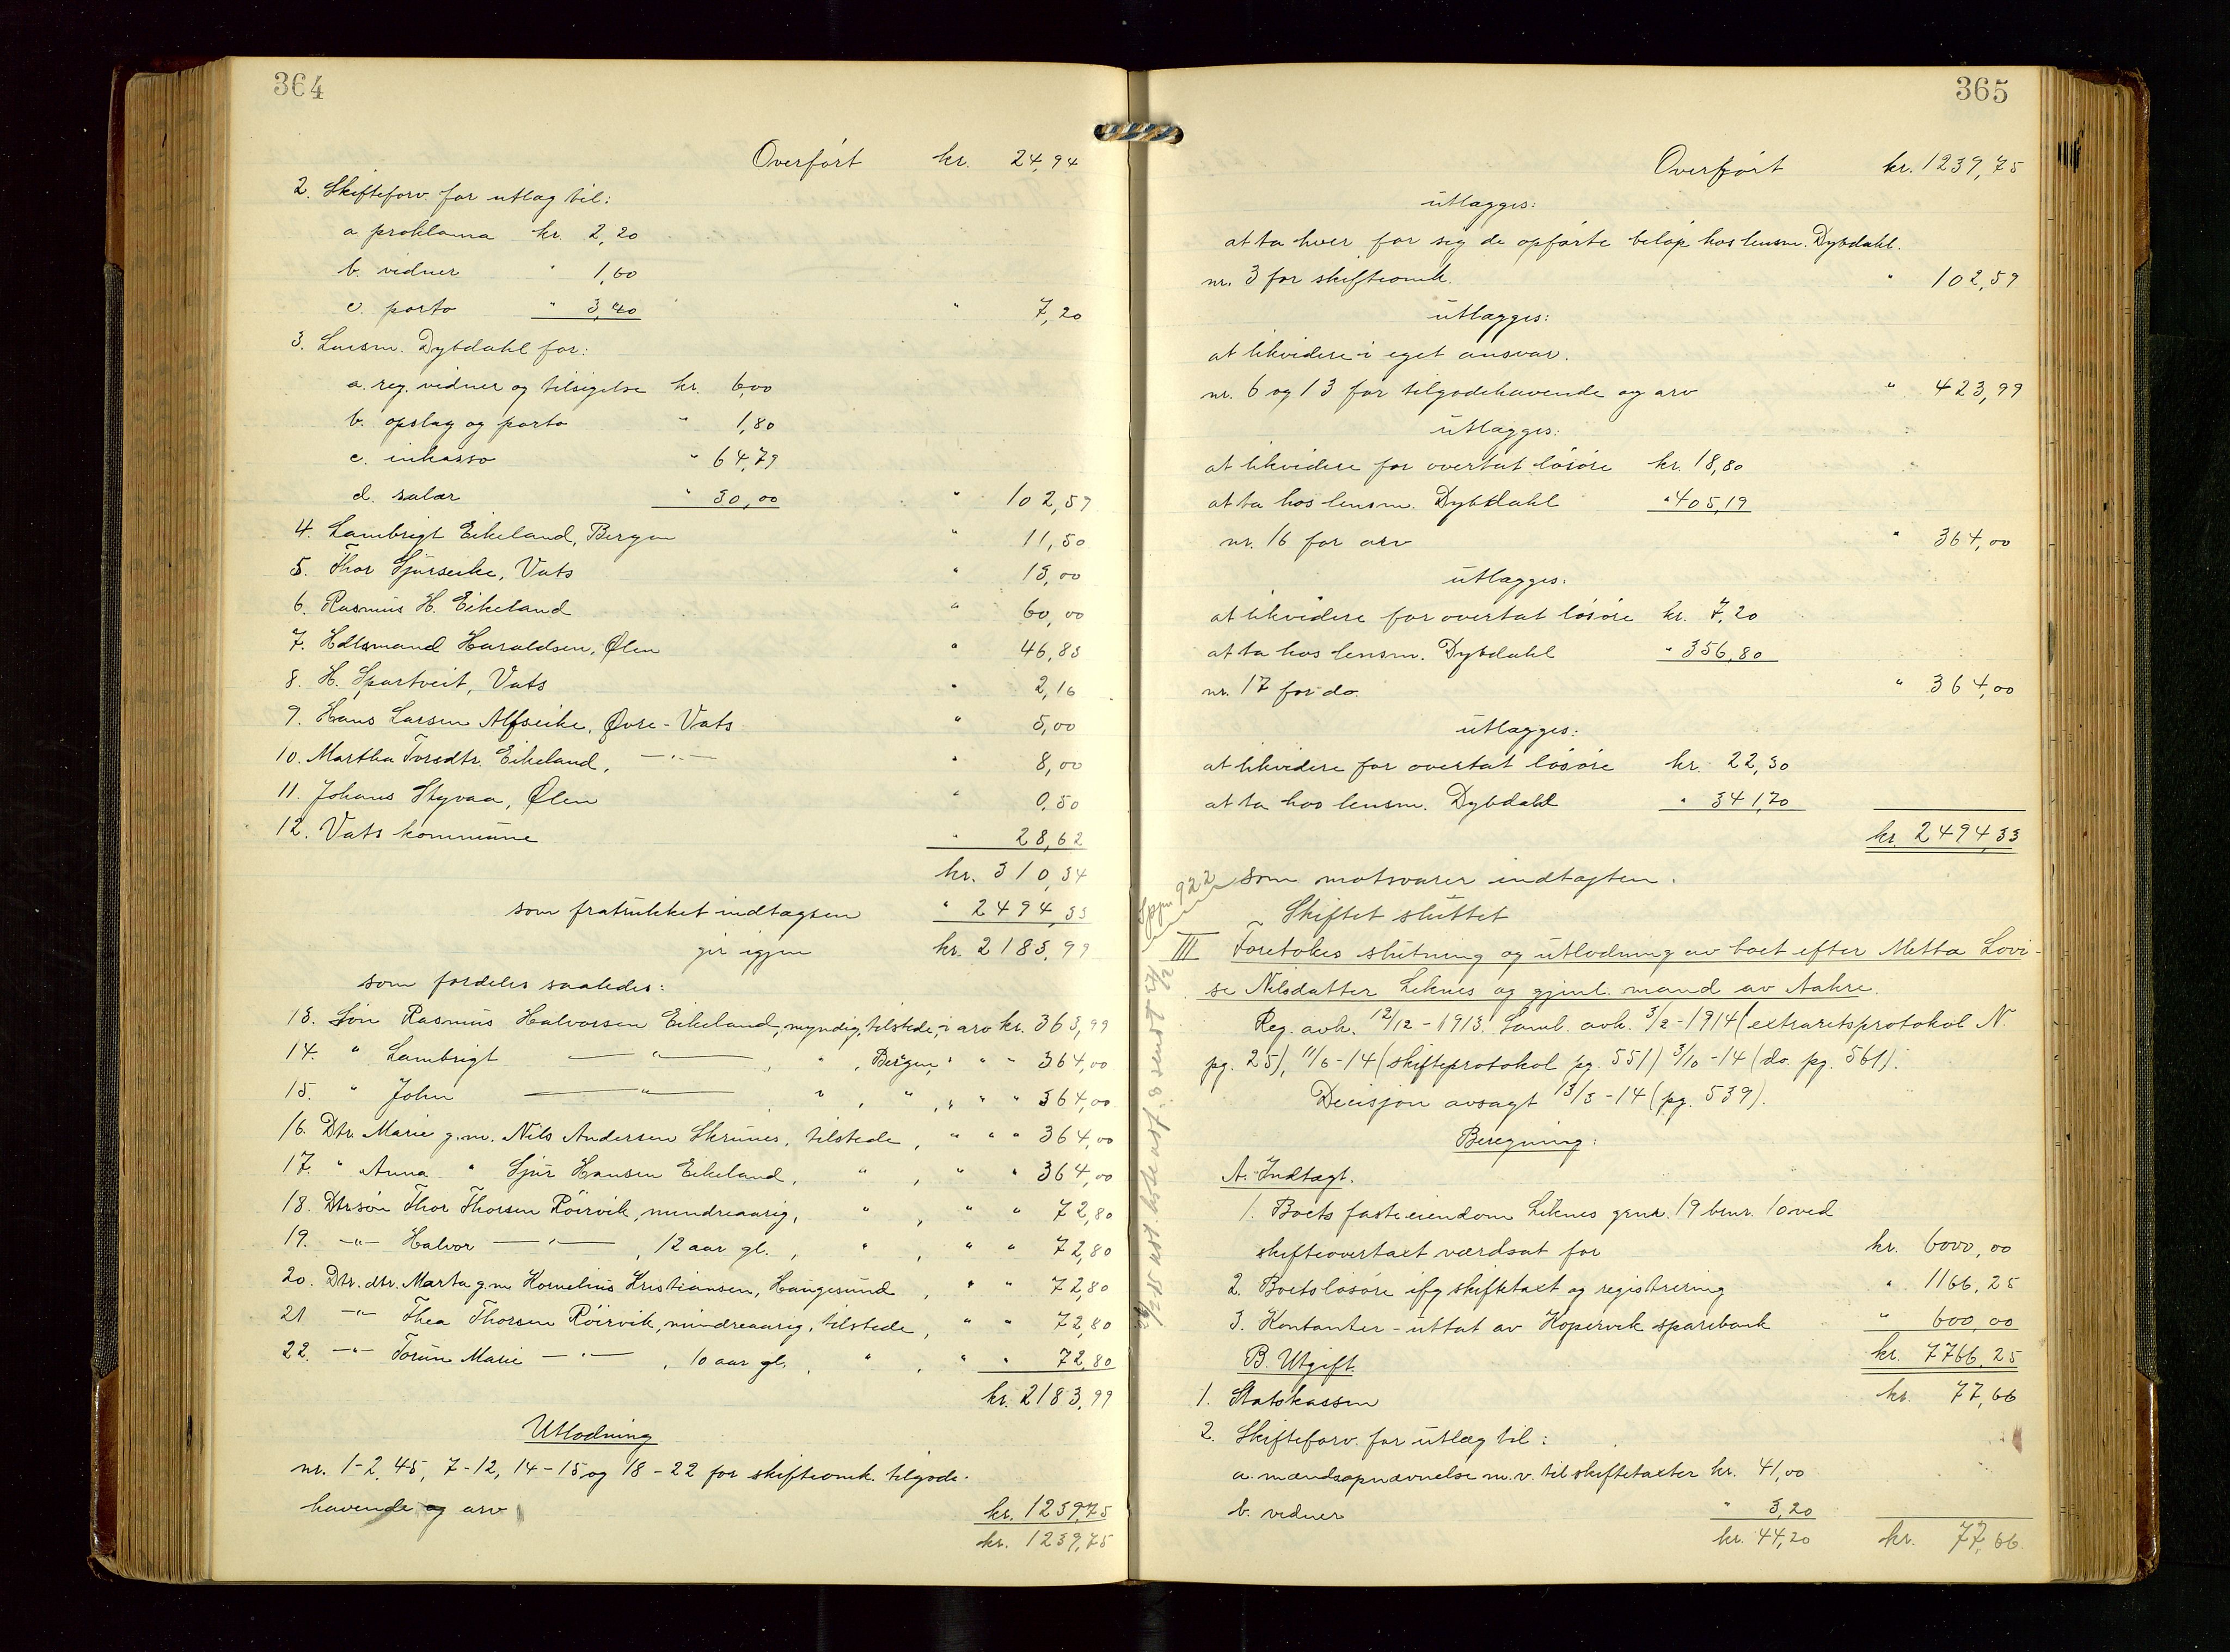 364
Overført kr. 24,94
2. Skifteforv. for utlæg til:
a. proklama kr. 2,20
b. vidner " 1,60
c. porto " 3,40 " 7,20
3. Lensm. Dybdahl for:
a. reg. vidner og tilsigelse kr. 6,00
b. opslag og porto " 1,80
c. inkasso " 64,79
d. salær " 30,00 " 102,59
4. Lambrigt Eikeland, Bergen " 11,50
5. Thor Gjerseike, Vats " 13,00
6. Rasmus H. Eikeland " 60,00
7. Hdlsmand Haraldsen, Ølen " 46,83
8. H. Spartveit, Vats " 2,16
9. Hans Larsen Alfseike, Øvre-Vats " 5,00
10. Martha Torsdtr. Eikeland, —"— " 8,00
11. Johans Styvaa, Ølen " 0,50
12. Vats kommune " 28,62
kr. 310,34
som fratrukket indtægten " 2494,33
gir igjen kr. 2183,99
som fordeles saaledes:
13. Søn Rasmus Halvorsen Eikeland, myndig, tilstede, i arv kr. 363,99
14. " Lambrigt —"— , " , Bergen, " " " 364,00
15. " John —"— , " , " , " " " 364,00
16. Dtr. Marie g.m. Nils Andersen Skrunes, tilstede, " " " 364,00
17. " Anna " Sjur Hansen Eikeland, " , " " 364,00
18. Dtrsøn Thor Thorsen Röirvik, mindreaarig, " , " " 72,80
19. —"— Halvor —"— , 12 aar gl. , " , " " 72,80
20. Dtr. dtr. Marta g.m Kornelius Kristiansen, Haugesund , " " 72,80
21 —"— Thea Thorsen Röirvik, mindreaarig, tilstede, " " 72,80
22. —"— Torun Marie —"— , 10 aar gl. , " , " " 72,80
kr. 2183,99
Utlodning
nr. 1-2, 4-5, 7-12, 14-15 og 18-22 for skifteomk. tilgode-
havende og arv kr. 1239,75
kr. 1239,75
365
Overført kr. 1239,75
utlægges:
at ta hver for sig de opførte beløp hos lensm. Dybdahl.
nr. 3 for skifteomk. " 102,59
utlægges:
at likvidere i eget ansvar.
nr. 6 og 13 for tilgodehavende og arv " 423,99
utlægges:
at likvidere for overtat løsøre kr. 18,80
at ta hos lensm. Dybdahl " 405,19
nr. 16 for arv " 364,00
utlægges:
at likvidere for overtat løsøre kr. 7,20
at ta hos lensm. Dybdahl " 356,80
nr. 17 for do. " 364,00
utlægges:
at likvidere for overtat løsøre kr. 22,30
at ta hos lensm. Dybdahl " 341,70
kr. 2494,33
som motsvarer indtægten.
Skiftet sluttet
III Foretokes slutning og utlodning av boet efter Metta Lovi-
se Nilsdatter Leknes og gjenl. mand av Aakre.
Reg. avh. 12/12-1913. Saml. avh. 3/2-1914 (extraretsprotokol N.
pg. 25), 11/6-14 (skifteprotokol pg. 551) 3/10-14 (do. pg. 561).
Decisjon avsagt 13/3-14 (pg. 539).
Beregning:
A. Indtægt.
1. Boets faste eiendom Leknes grnr. 19 brnr. 10 ved
skifteovertaxt værdsat for kr. 6000,00
2. Boets løsøre ifg skiftetaxt og registrering " 1166,25
3. Kontanter - uttat av Kopervik sparebank " 600,00
kr. 7766,25
B. Utgift.
1. Statskassen kr. 77,66
2. Skifteforv. for utlæg til:
a. mændsopnævnelse m.v. til skiftetaxter kr. 41,00
b. vidner " 3,20
kr. 44,20 kr. 77,66